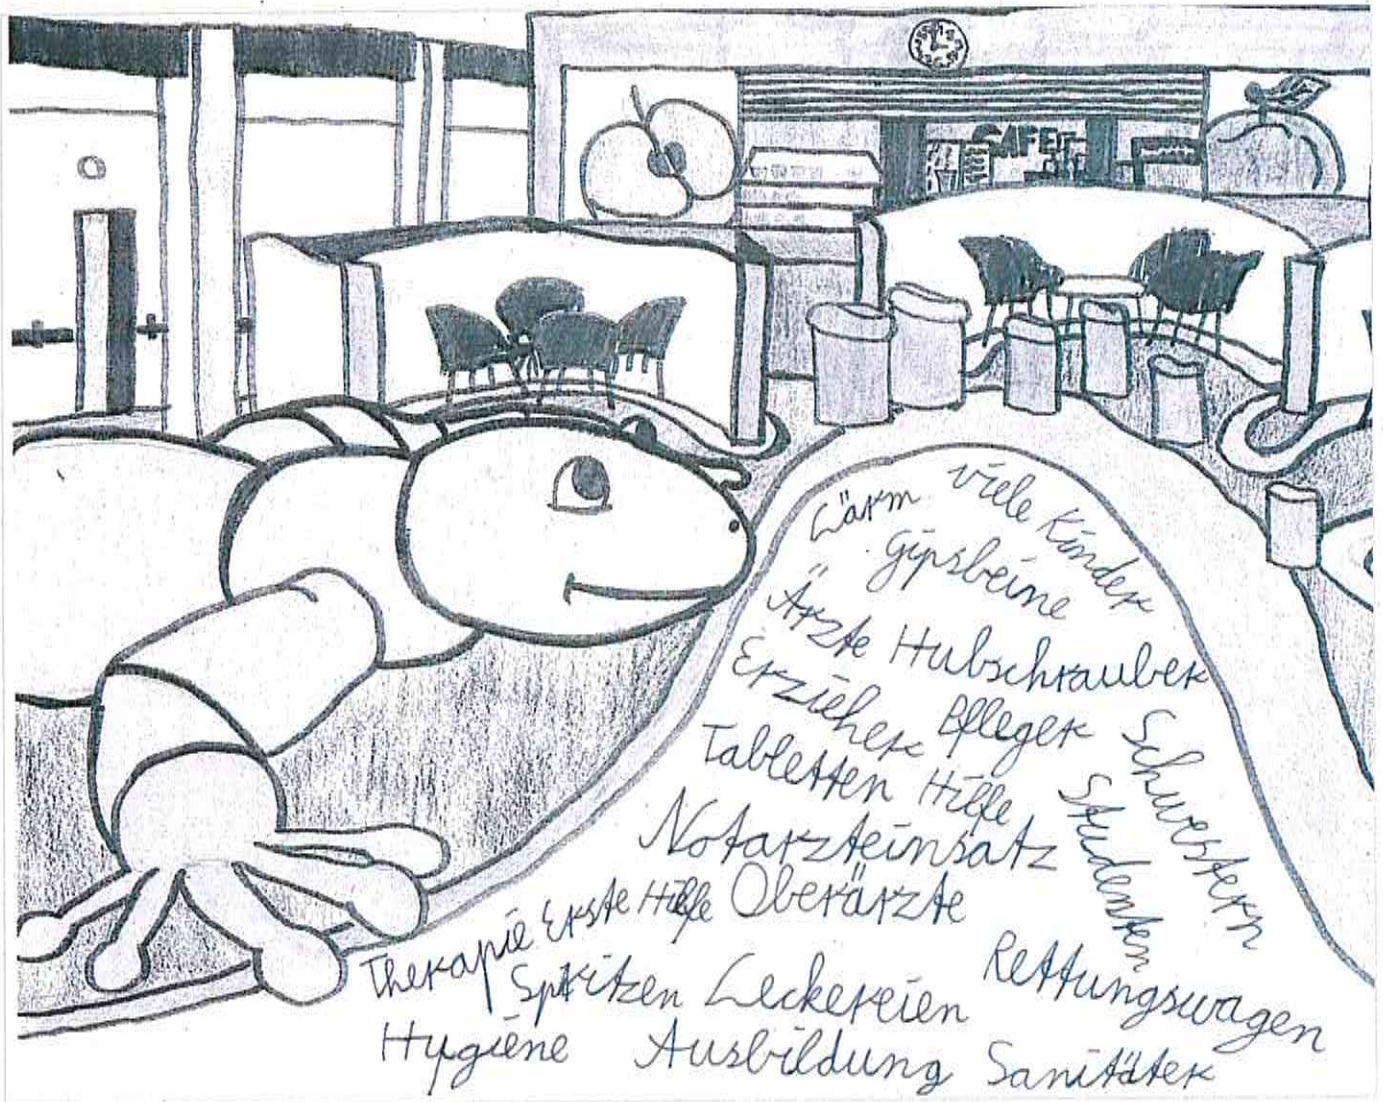 CAFE
Lärm
viele Kinder
Gipsbeine
Ärzte Hubschrauber
Erzieher Pfleger
Schwestern
Tabletten Hilfe
Studenten
Notarzteinsatz
Therapie Erste Hilfe Oberärzte
Spritzen Leckereien Rettungswagen
Hygiene Ausbildung Sanitäter